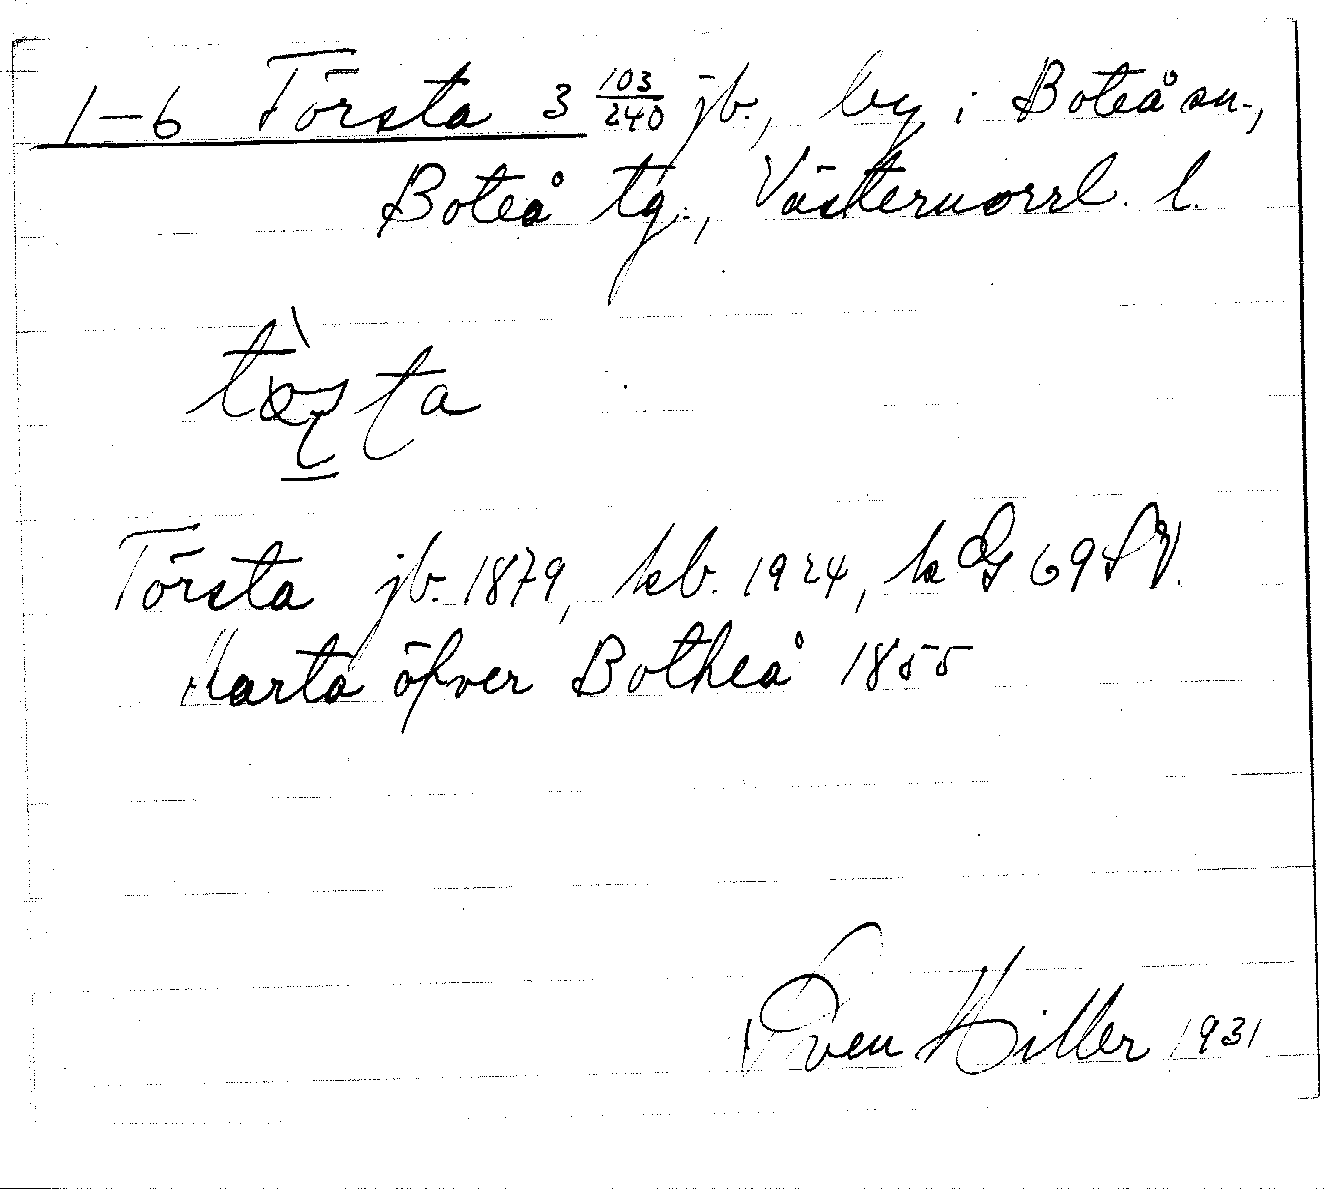 1–6 Törsta 3 103/240 jb., by i Boteå sn.,
Boteå tg., Västernorrl. l.
Törsta jb. 1879, kb. 1924, k G 69 SV.
Karta öfver Botheå 1855
Sven Hiller 1931